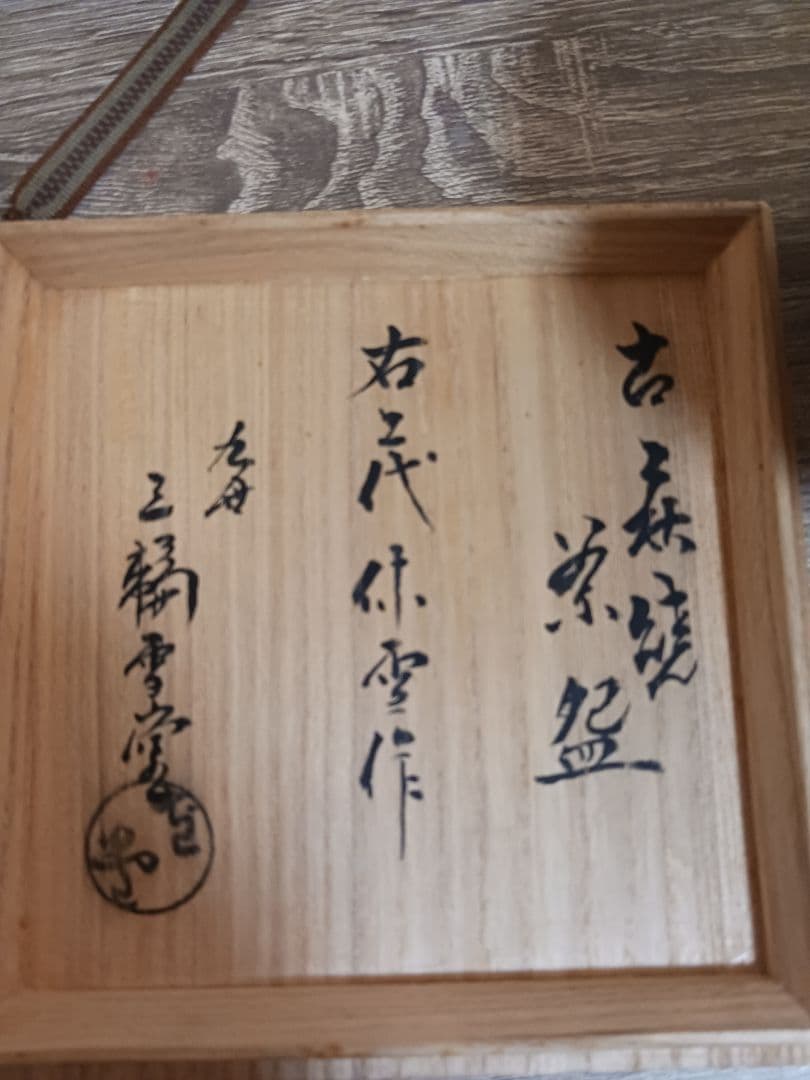 古萩焼
茶盌
右上代休雪作
九世
三輪雪堂